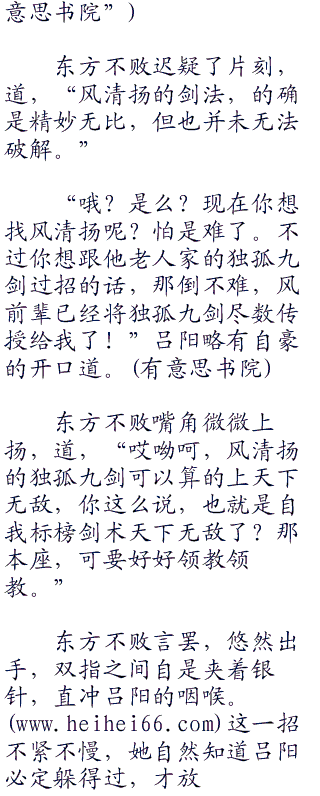 意思书院”)
东方不败迟疑了片刻，
道，“风清扬的剑法，的确
是精妙无比，但也并未无法
破解。”
“哦？是么？现在你想
找风清扬呢？怕是难了。不
过你想跟他老人家的独孤九
剑过招的话，那倒不难，风
前辈已经将独孤九剑尽数传
授给我了！”吕阳略有自豪
的开口道。(有意思书院)
东方不败嘴角微微上
扬，道，“哎呦呵，风清扬
的独孤九剑可以算的上天下
无敌，你这么说，也就是自
我标榜剑术天下无敌了？那
本座，可要好好领教领
教。”
东方不败言罢，悠然出
手，双指之间自是夹着银
针，直冲吕阳的咽喉。
(www.heihei66.com)这一招
不紧不慢，她自然知道吕阳
必定躲得过，才放